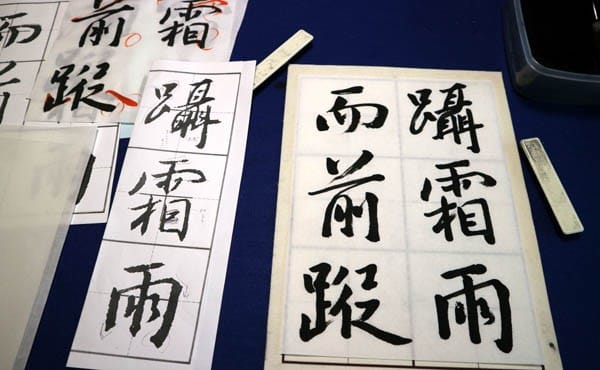 躡霜雨
而前蹤
躡霜雨
霜
前蹤
而